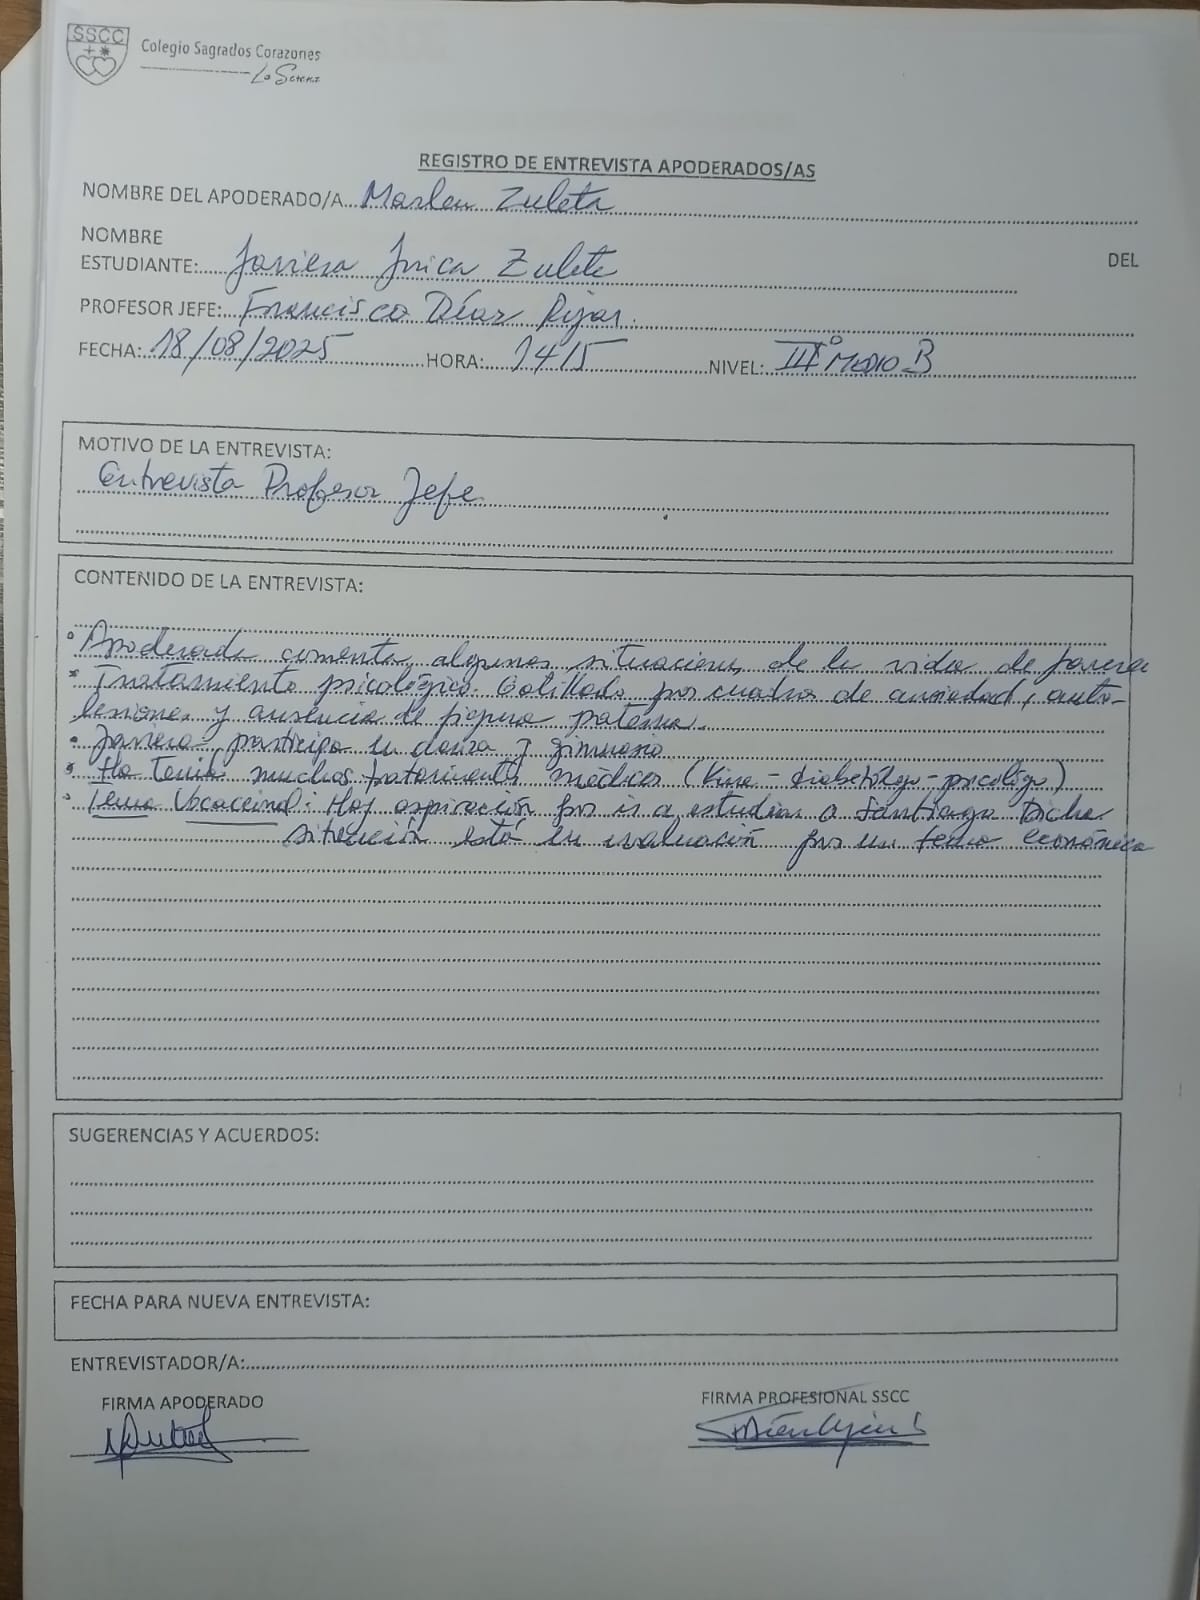 SSCC
Colegio Sagrados Corazones
La Serena
REGISTRO DE ENTREVISTA APODERADOS/AS
NOMBRE DEL APODERADO/A Marlen Zuleta
NOMBRE DEL
ESTUDIANTE: Javiera Zuleta
PROFESOR JEFE: Francisco Díaz Rojas
FECHA: 18/08/2025 HORA: 1415 NIVEL: III° MEDIO B
MOTIVO DE LA ENTREVISTA:
Entrevista Profesor Jefe
CONTENIDO DE LA ENTREVISTA:
• Apoderada comenta algunas situaciones de la vida de Javiera
• Tratamiento psicológico. Gatillado por cuadros de ansiedad, auto-
lesiones y ausencia de figura paterna.
• Javiera participa en danza y gimnasio
• Ha tenido muchos tratamientos médicos (Kine - diabetólogo - psicólogo)
• Tema Vocacional: Hay aspiración por ir a estudiar a Santiago Dicha
situación está en evaluación por un tema económico
SUGERENCIAS Y ACUERDOS:
FECHA PARA NUEVA ENTREVISTA:
ENTREVISTADOR/A:
FIRMA APODERADO FIRMA PROFESIONAL SSCC